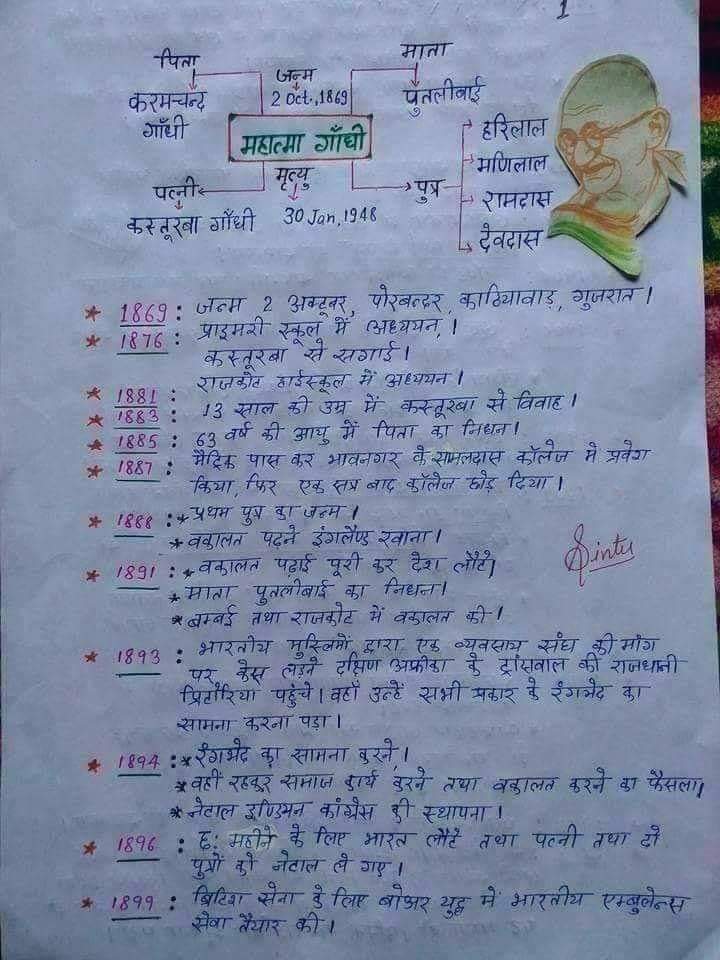 1
पिता
माता
जन्म
करमचन्द गाँधी
2 Oct., 1869
पुतलीबाई
महात्मा गाँधी
हरिलाल
मणिलाल
पत्नी
मृत्यु
पुत्र
रामदास
कस्तूरबा गाँधी
30 Jan, 1948
देवदास
* 1869 : जन्म 2 अक्टूबर, पोरबन्दर, काठियावाड़, गुजरात।
* 1876 : प्राइमरी स्कूल में अध्ययन,।
कस्तूरबा से सगाई।
* 1881 : राजकोट हाईस्कूल में अध्ययन।
* 1883 : 13 साल की उम्र में कस्तूरबा से विवाह।
* 1885 : 63 वर्ष की आयु में पिता का निधन।
* 1887 : मैट्रिक पास कर भावनगर के सामलदास कॉलेज में प्रवेश
किया, फिर एक सत्र बाद कॉलेज छोड़ दिया।
* 1888 : * प्रथम पुत्र का जन्म।
* वकालत पढ़ने इंगलैण्ड रवाना।
Sintu
* 1891 : * वकालत पढ़ाई पूरी कर देश लौटे।
* माता पुतलीबाई का निधन।
* बम्बई तथा राजकोट में वकालत की।
* 1893 : भारतीय मुस्लिमों द्वारा एक व्यवसाय संघ की मांग
पर केस लड़ने दक्षिण अफ्रीका के ट्रांसवाल की राजधानी
प्रिटोरिया पहुंचे। वहाँ उन्हें सभी प्रकार के रंगभेद का
सामना करना पड़ा।
* 1894 : * रंगभेद का सामना करने,।
* वहीं रहकर समाज कार्य करने तथा वकालत करने का फैसला।
* नेटाल इण्डियन कांग्रेस की स्थापना।
* 1896 : छ: महीने के लिए भारत लौटे तथा पत्नी तथा दो
पुत्रों को नेटाल ले गए।
* 1899 : ब्रिटिश सेना के लिए बोअर युद्ध में भारतीय एम्बुलेन्स
सेवा तैयार की।